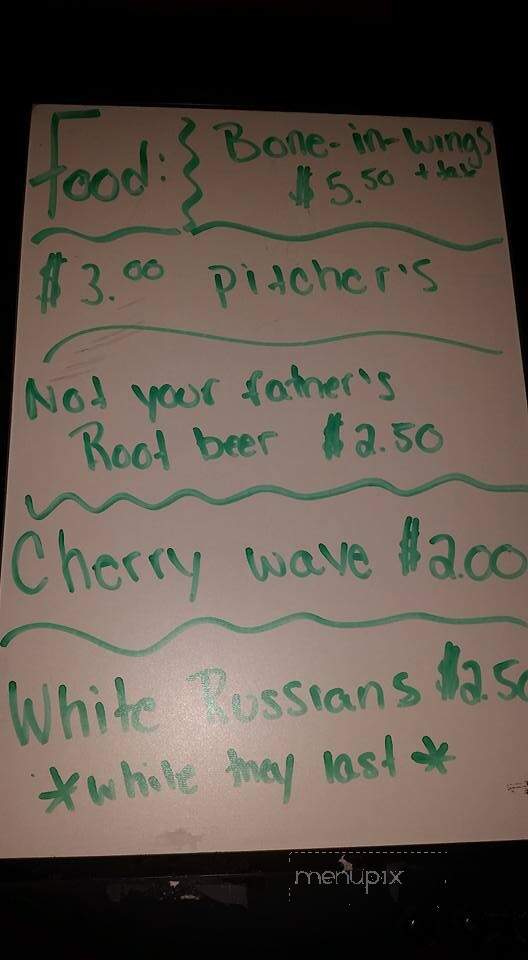 Food: Bone-in-Wings
$5.50 + tax
$3.00 Pitcher's
Not your father's
Root beer $2.50
Cherry wave $2.00
White Russians $2.50
*while they last*
menupix